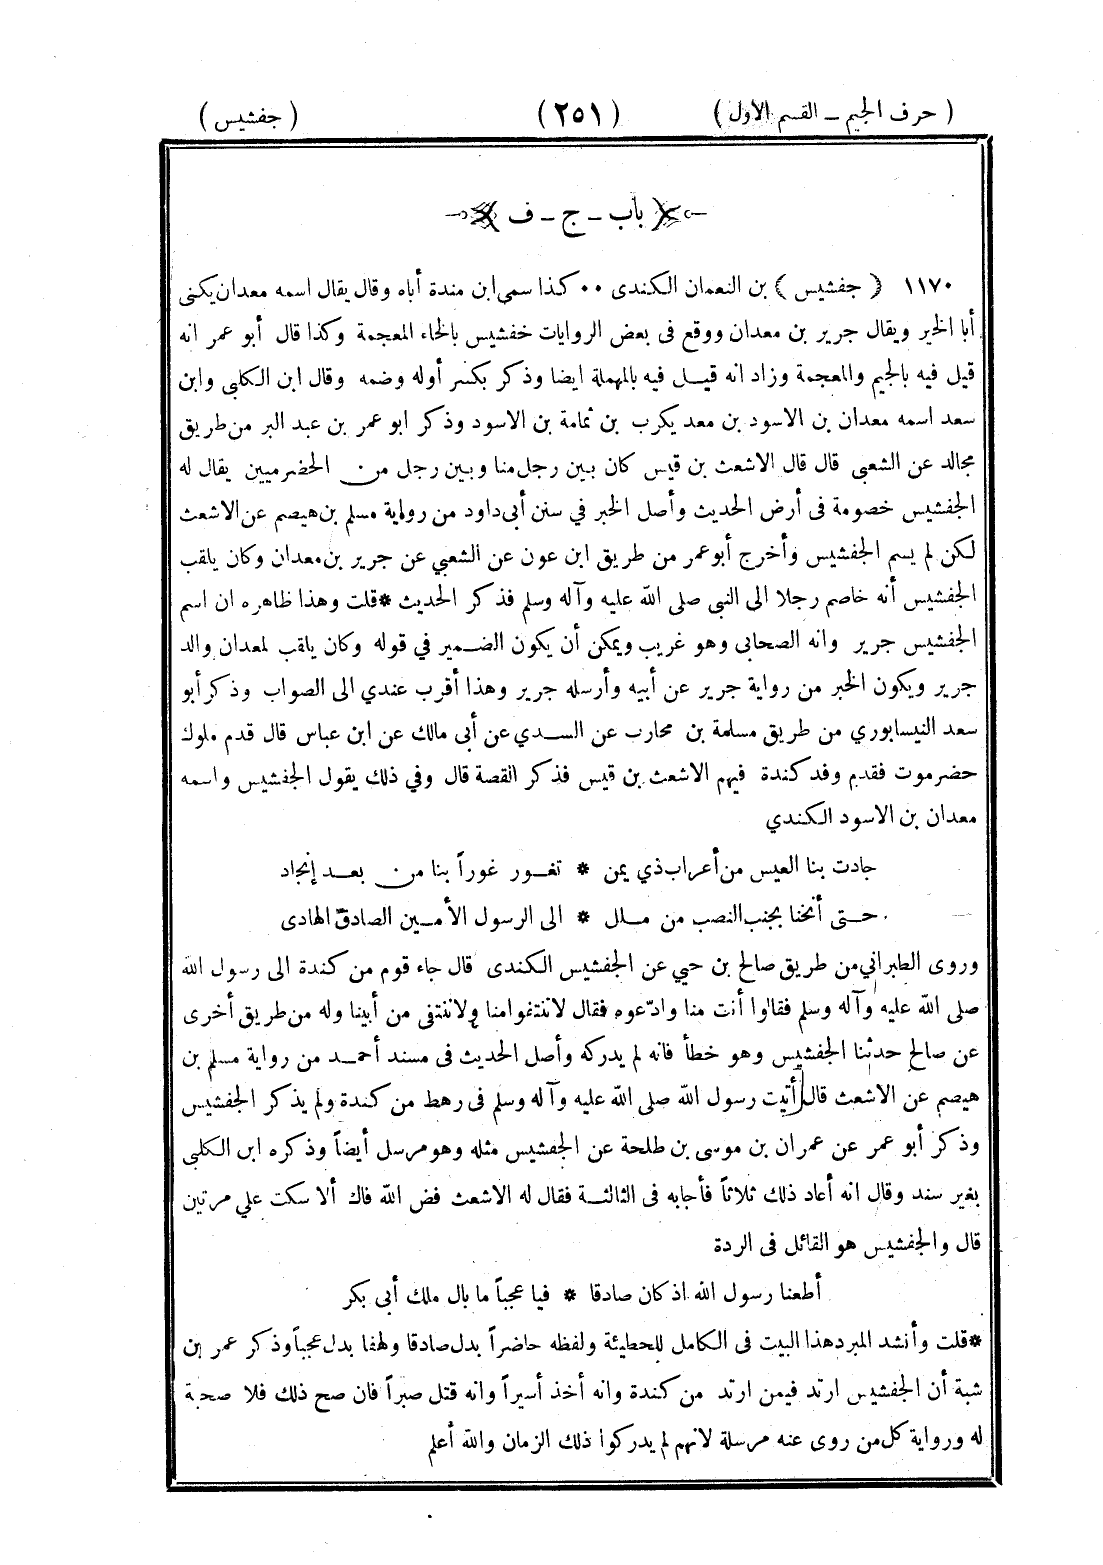 ( حرف الجيم ــ القسم الاول ) ( ٢٥١ ) ( جفشيس )
باب ــ ج ــ ف
١١٧٠ ( جفشيس ) بن النعمان الكندى ٠٠ كذا سمى ابن مندة أباه وقال يقال اسمه معدان يكنى
أبا الخير ويقال جرير بن معدان ووقع فى بعض الروايات خفشيس بالخاء المعجمة وكذا قال أبو عمر انه
قيل فيه بالجيم والمعجمة وزاد انه قيل فيه بالمهملة ايضا وذكر بكسر أوله وضمه وقال ابن الكلبى وابن
سعد اسمه معدان بن الاسود بن معد يكرب بن ثمامة بن الاسود وذكر ابو عمر بن عبد البر من طريق
مجالد عن الشعبى قال قال الاشعث بن قيس كان بين رجل منا وبين رجل من الحضرميين يقال له
الجفشيس خصومة فى أرض الحديث وأصل الخبر في سنن أبى داود من رواية مسلم بن هيصم عن الاشعث
لكن لم يسم الجفشيس وأخرج أبو عمر من طريق ابن عون عن الشعبي عن جرير بن معدان وكان يلقب
الجفشيس أنه خاصم رجلا الى النبى صلى الله عليه وآله وسلم فذكر الحديث *قلت وهذا ظاهره ان اسم
الجفشيس جرير وانه الصحابى وهو غريب ويمكن أن يكون الضمير في قوله وكان يلقب لمعدان والد
جرير ويكون الخبر من رواية جرير عن أبيه وأرسله جرير وهذا أقرب عندي الى الصواب وذكر أبو
سعد النيسابوري من طريق مسلمة بن محارب عن السدي عن أبى مالك عن ابن عباس قال قدم ملوك
حضرموت فقدم وفد كندة فيهم الاشعث بن قيس فذكر القصة قال وفي ذلك يقول الجفشيس واسمه
معدان بن الاسود الكندي
جادت بنا العيس من أعراب ذي يمن * تغور غوراً بنا من بعد إنجاد
حتى أنخنا بجنب النصب من ملل * الى الرسول الأمين الصادق الهادى
وروى الطبراني من طريق صالح بن حيي عن الجفشيس الكندى قال جاء قوم من كندة الى رسول الله
صلى الله عليه وآله وسلم فقالوا أنت منا وادّعوه فقال لا نتنفوا منا ولا ننتفى من أبينا وله من طريق أخرى
عن صالح حدثنا الجفشيس وهو خطأ فانه لم يدركه وأصل الحديث فى مسند أحمد من رواية مسلم بن
هيصم عن الاشعث قال أتيت رسول الله صلى الله عليه وآله وسلم فى رهط من كندة ولم يذكر الجفشيس
وذكر أبو عمر عن عمران بن موسى بن طلحة عن الجفشيس مثله وهو مرسل أيضاً وذكره ابن الكلبى
بغير سند وقال انه أعاد ذلك ثلاثاً فأجابه فى الثالثة فقال له الاشعث فض الله فاك ألا سكت علي مرتين
قال والجفشيس هو القائل فى الردة
أطعنا رسول الله اذ كان صادقا * فيا عجباً ما بال ملك أبى بكر
*قلت وأنشد المبرد هذا البيت فى الكامل للحطيئة ولفظه حاضراً بدل صادقا ولهفا بدل عجباً وذكر عمر بن
شبة أن الجفشيس ارتد فيمن ارتد من كندة وانه أخذ أسيراً وانه قتل صبراً فان صح ذلك فلا صحبة
له ورواية كل من روى عنه مرسلة لانهم لم يدركوا ذلك الزمان والله أعلم